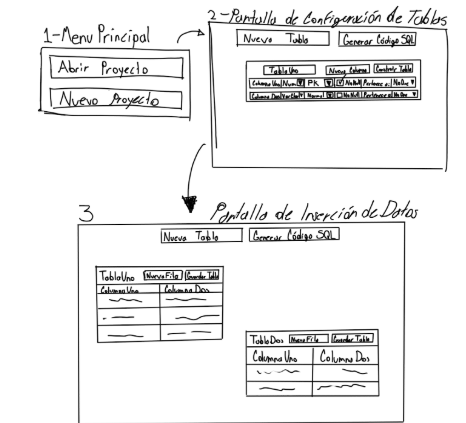 1-Menu Principal
Abrir Proyecto
Nuevo Proyecto
2-Pantalla de Configuración de Tablas
Nueva Tabla
Generar Código SQL
Tabla Uno
Nueva Columna
Construir Tabla
Columna Uno Num PK No Null Pertenece a: No One
Columna Dos VarChar Normal No Null Pertenece a: No One
3 Pantalla de Inserción de Datos
Nueva Tabla
Generar Código SQL
Tabla Uno Nueva Fila Guardar Tabla
Columna Uno Columna Dos
Tabla Dos Nueva Fila Guardar Tabla
Columna Uno Columna Dos